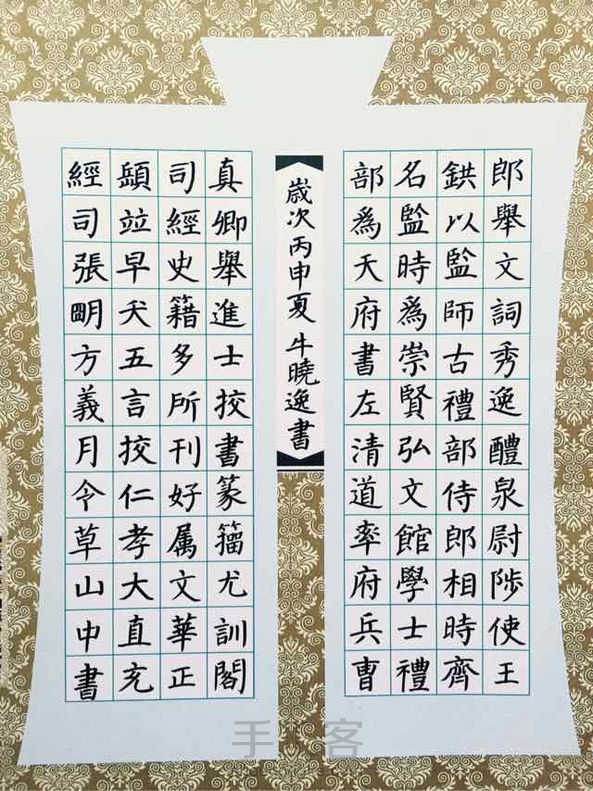 郎舉文詞秀逸醴泉尉陟使王
鉷以監師古禮部侍郎相時齊
名監時爲崇賢弘文館學士禮
部爲天府書左清道率府兵曹
歲次丙申夏 牛曉逸書
真卿舉進士挍書篆籀尤訓閣
司經史籍多所刊好属文華正
竝早夭五言挍仁孝大直充
經司張朙方義月令草山中書
手工客